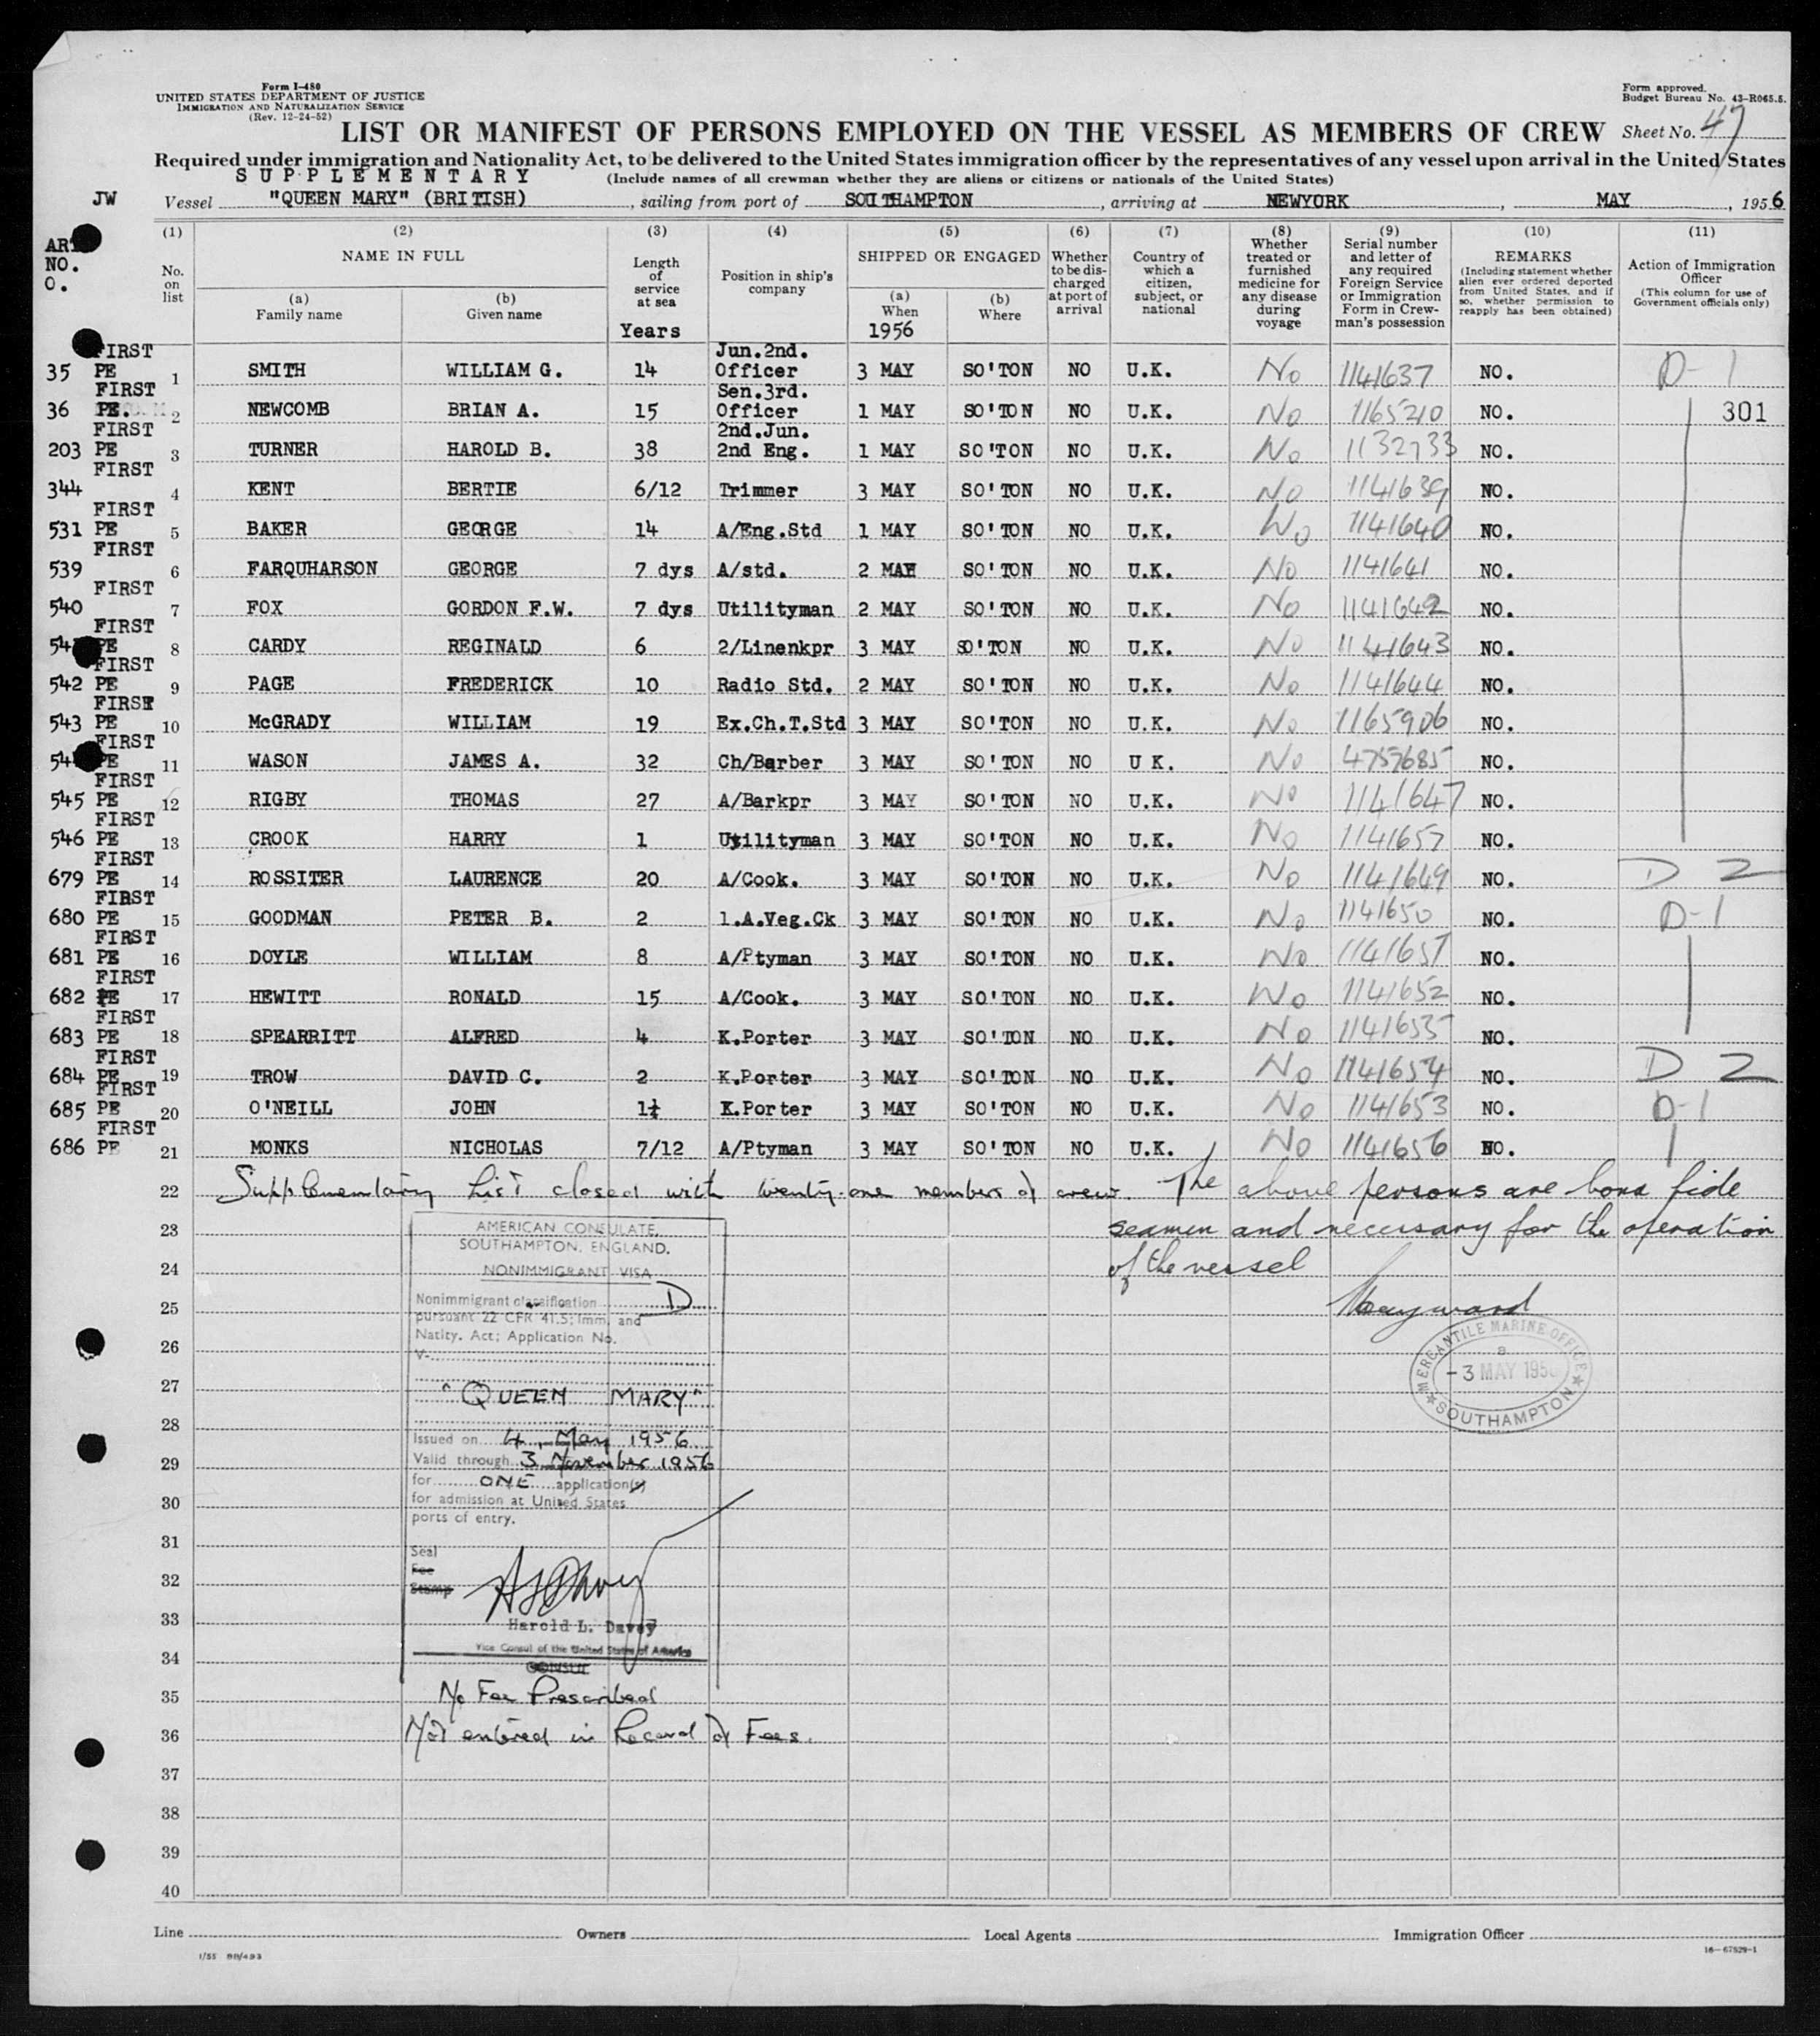 Form I-480
UNITED STATES DEPARTMENT OF JUSTICE
IMMIGRATION AND NATURALIZATION SERVICE
(Rev. 12-24-52)
Form approved.
Budget Bureau No. 43-R065.5.
LIST OR MANIFEST OF PERSONS EMPLOYED ON THE VESSEL AS MEMBERS OF CREW Sheet No. 47
Required under immigration and Nationality Act, to be delivered to the United States immigration officer by the representatives of any vessel upon arrival in the United States
SUPPLEMENTARY (Include names of all crewman whether they are aliens or citizens or nationals of the United States)
JW Vessel "QUEEN MARY" (BRITISH), sailing from port of SOUTHAMPTON, arriving at NEWYORK, MAY, 1956
ART
NO.
O.
(1) No. on list
(2) NAME IN FULL
(a) Family name
(b) Given name
(3) Length of service at sea
Years
(4) Position in ship's company
(5) SHIPPED OR ENGAGED
(a) When
1956
(b) Where
(6) Whether to be discharged at port of arrival
(7) Country of which a citizen, subject, or national
(8) Whether treated or furnished medicine for any disease during voyage
(9) Serial number and letter of any required Foreign Service or Immigration Form in Crewman's possession
(10) REMARKS
(Including statement whether alien ever ordered deported from United States, and if so, whether permission to reapply has been obtained)
(11) Action of Immigration Officer
(This column for use of Government officials only)
FIRST Jun.2nd.
35 PE 1 SMITH WILLIAM G. 14 Officer 3 MAY SO'TON NO U.K. No 1141637 NO. D-1
FIRST Sen.3rd.
36 PE. 2 NEWCOMB BRIAN A. 15 Officer 1 MAY SO'TON NO U.K. No 1165210 NO. 301
FIRST 2nd.Jun.
203 PE 3 TURNER HAROLD B. 38 2nd Eng. 1 MAY SO'TON NO U.K. No 1132733 NO.
FIRST
344 4 KENT BERTIE 6/12 Trimmer 3 MAY SO'TON NO U.K. No 1141639 NO.
FIRST
531 PE 5 BAKER GEORGE 14 A/Eng.Std 1 MAY SO'TON NO U.K. No 1141640 NO.
FIRST
539 6 FARQUHARSON GEORGE 7 dys A/std. 2 MAY SO'TON NO U.K. No 1141641 NO.
FIRST
540 7 FOX GORDON F.W. 7 dys Utilityman 2 MAY SO'TON NO U.K. No 1141642 NO.
FIRST
54 PE 8 CARDY REGINALD 6 2/Linenkpr 3 MAY SO'TON NO U.K. No 1141643 NO.
FIRST
542 PE 9 PAGE FREDERICK 10 Radio Std. 2 MAY SO'TON NO U.K. No 1141644 NO.
FIRST
543 PE 10 McGRADY WILLIAM 19 Ex.Ch.T.Std 3 MAY SO'TON NO U.K. No 1165906 NO.
FIRST
54 PE 11 WASON JAMES A. 32 Ch/Barber 3 MAY SO'TON NO U K. No 4757685 NO.
FIRST
545 PE 12 RIGBY THOMAS 27 A/Barkpr 3 MAY SO'TON NO U.K. No 1141647 NO.
FIRST
546 PE 13 CROOK HARRY 1 Utilityman 3 MAY SO'TON NO U.K. No 1141657 NO.
FIRST
679 PE 14 ROSSITER LAURENCE 20 A/Cook. 3 MAY SO'TON NO U.K. No 1141649 NO. D 2
FIRST
680 PE 15 GOODMAN PETER B. 2 1.A.Veg.Ck 3 MAY SO'TON NO U.K. No 1141650 NO. D-1
FIRST
681 PE 16 DOYLE WILLIAM 8 A/Ptyman 3 MAY SO'TON NO U.K. No 1141651 NO.
FIRST
682 PE 17 HEWITT RONALD 15 A/Cook. 3 MAY SO'TON NO U.K. No 1141652 NO.
FIRST
683 PE 18 SPEARRITT ALFRED 4 K.Porter 3 MAY SO'TON NO U.K. No 1141655 NO.
FIRST
684 PE 19 TROW DAVID C. 2 K.Porter 3 MAY SO'TON NO U.K. No 1141654 NO. D 2
FIRST
685 PE 20 O'NEILL JOHN 1¼ K.Porter 3 MAY SO'TON NO U.K. No 1141653 NO. D-1
FIRST
686 PE 21 MONKS NICHOLAS 7/12 A/Ptyman 3 MAY SO'TON NO U.K. No 1141656 NO.
22 Supplementary List closed with twenty-one members of crew. The above persons are bona fide
23 seamen and necessary for the operation
24 of the vessel
25 Hayward
26
27
28
29
30
31
32
33
34
35
36
37
38
39
40
AMERICAN CONSULATE,
SOUTHAMPTON, ENGLAND.
NONIMMIGRANT VISA
Nonimmigrant classification D
pursuant 22 CFR 41.5; Imm. and
Natity. Act; Application No.
V-
"QUEEN MARY"
Issued on 4 May 1956
Valid through 3 November 1956
for ONE application(s)
for admission at United States
ports of entry.
Seal
Fee
Stamp
Harold L. Davey
Vice Consul of the United States of America
CONSUL
No Fee Prescribed
Not entered in Record of Fees.
MERCANTILE MARINE OFFICE
8
-3 MAY 195
SOUTHAMPTON
Line Owners Local Agents Immigration Officer
1/55 BB/493
16-67529-1